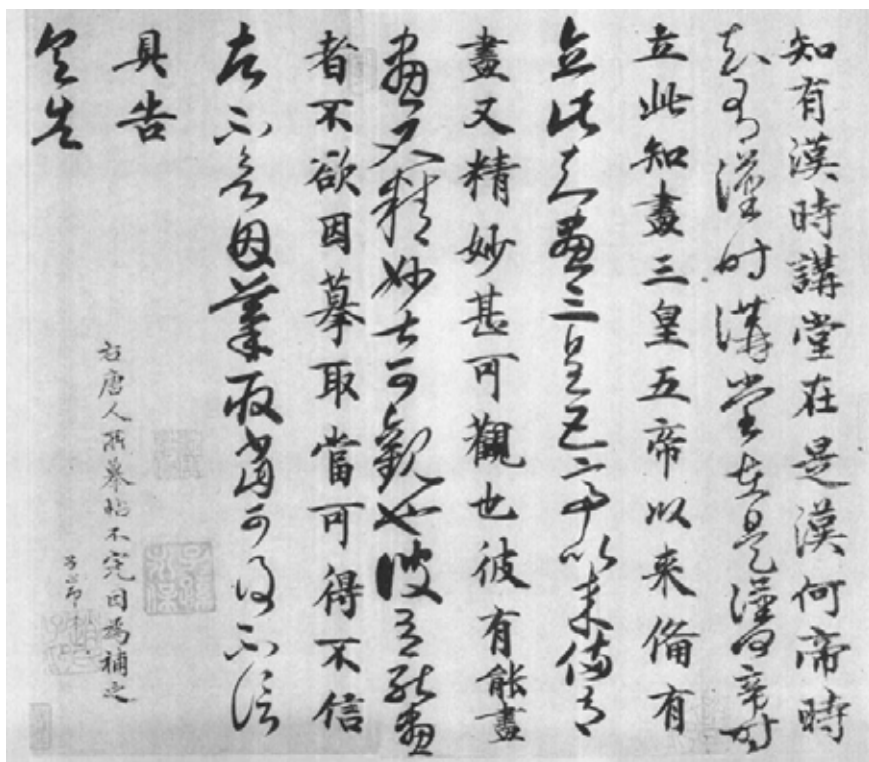 知有漢時講堂在是漢何帝時
知有漢時講堂在是漢何帝時
立此知畫三皇五帝以來備有
立此知畫三皇五帝以來備有
畫又精妙甚可觀也彼有能畫
畫又精妙甚可觀也彼有能畫
者不欲因摹取當可得不信
者不欲因摹取當可得不信
具告
具告
右唐人所摹帖不完因為補之
子昂